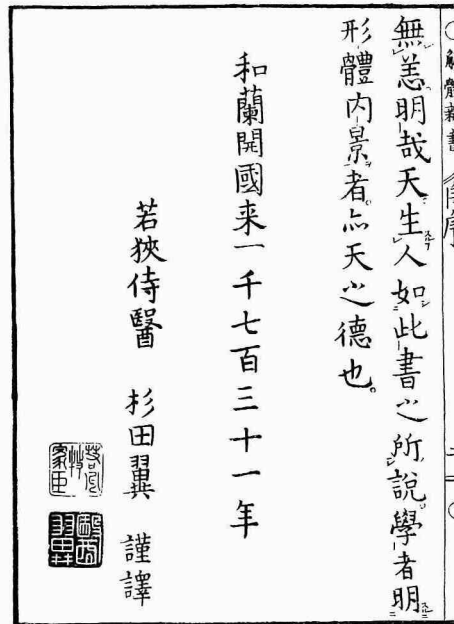 解體新書 自序
無恙明哉天生人如此書之所說學者明
形體内景者亦天之德也。
和蘭開國来一千七百三十一年
若狹侍醫 杉田翼 謹譯